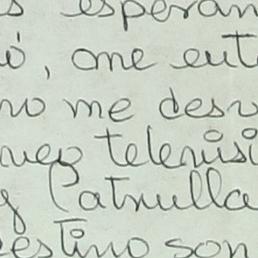 s esperan
ó, me ent
no me desv
nuevo televisi
y Patrulla
estino son